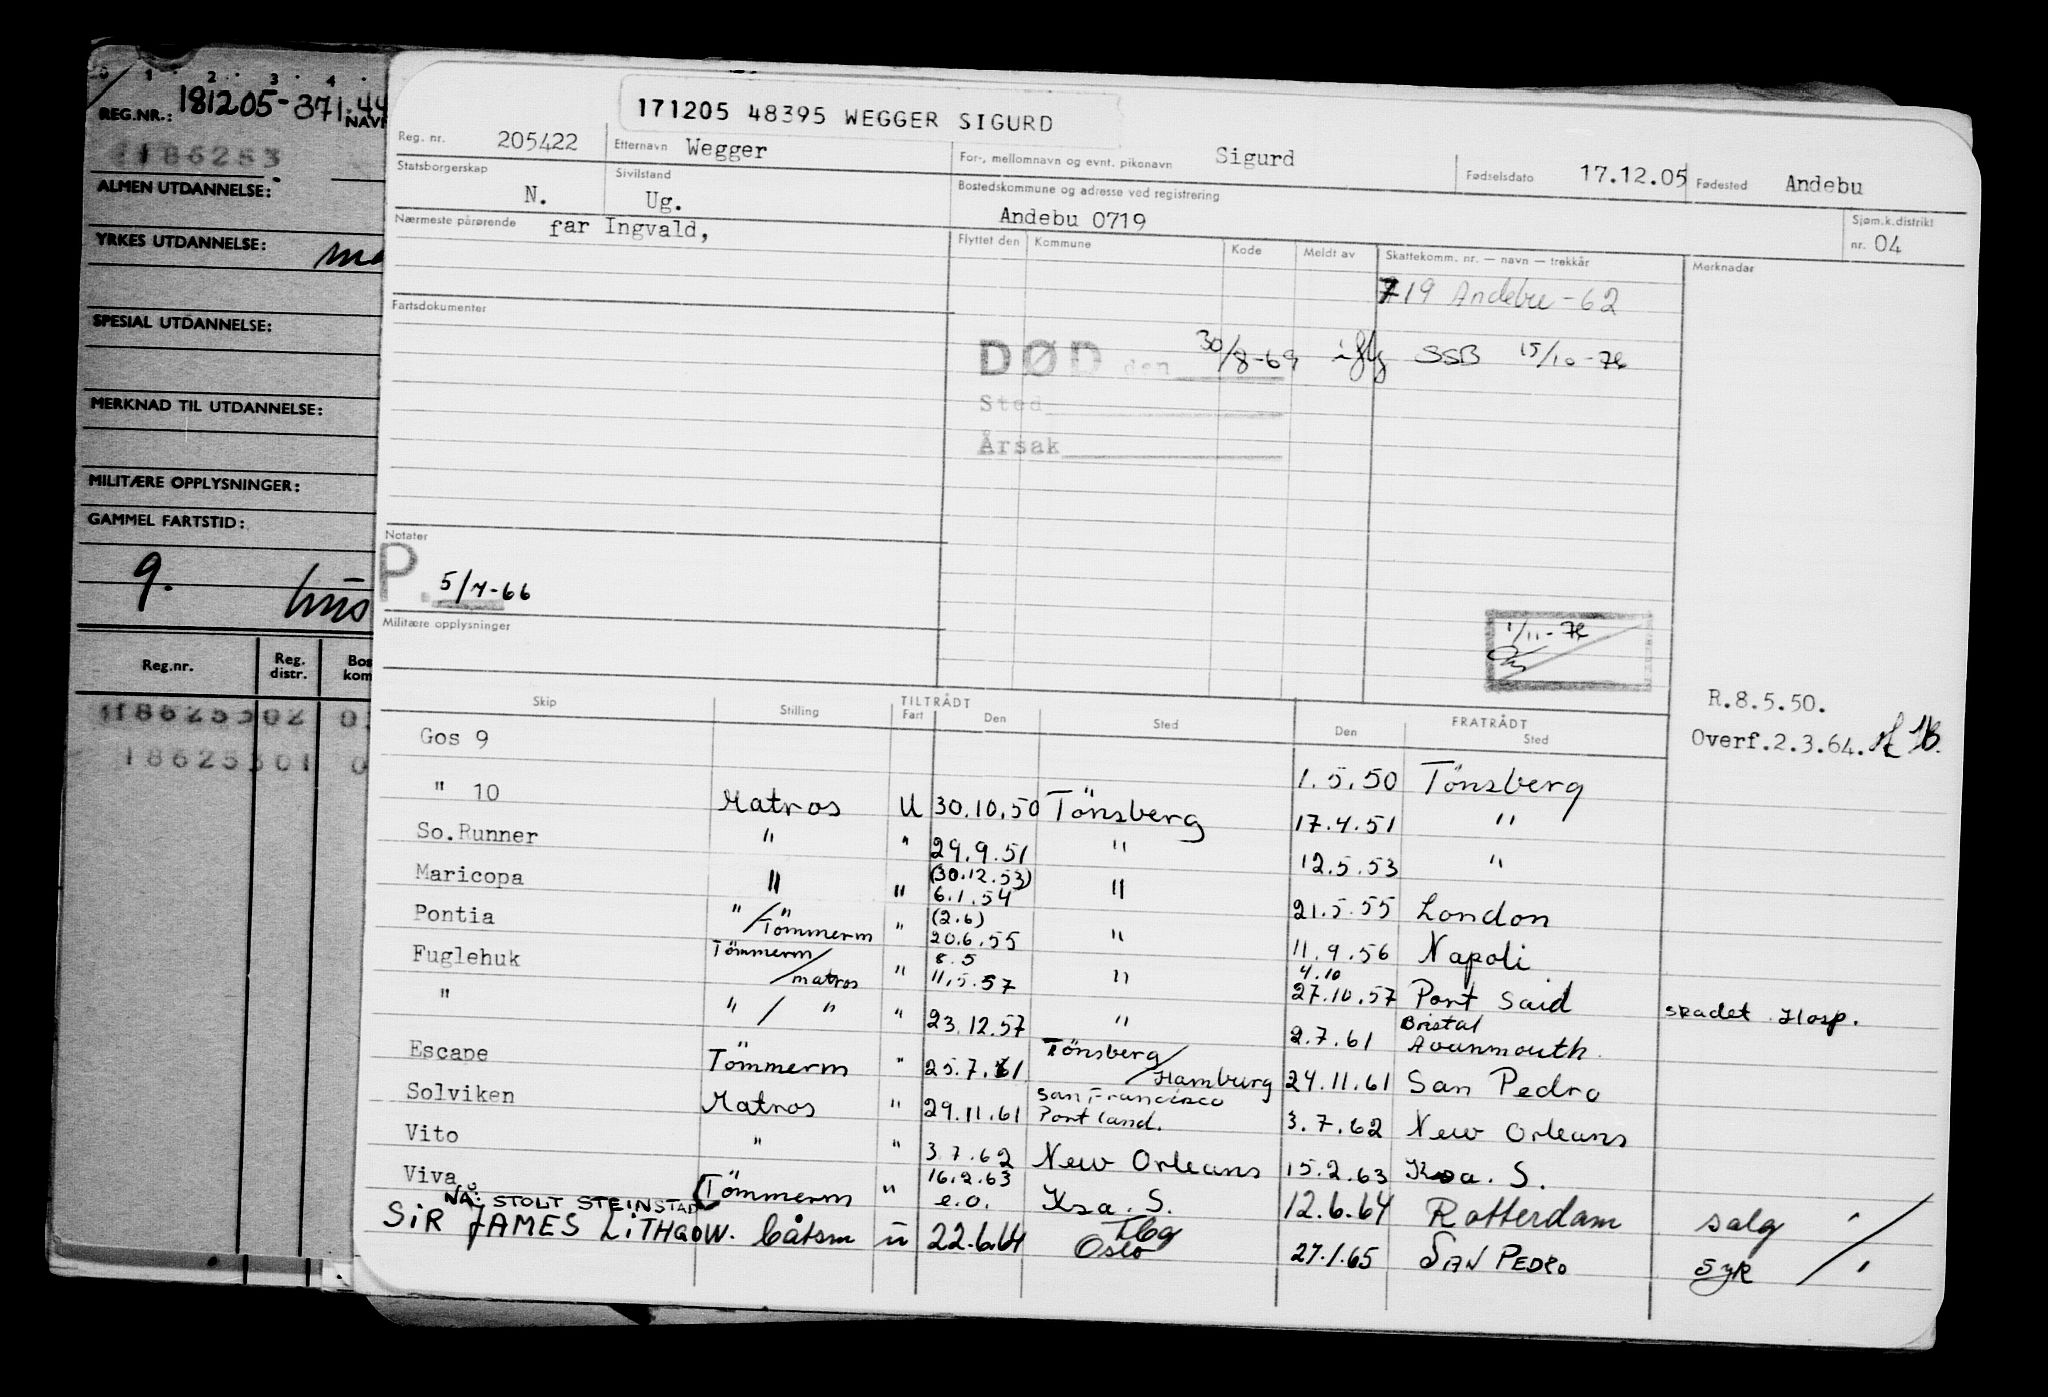 0 1 2 3 4
REG.NR.: 181205-371.44
NAVN
1186253
ALMEN UTDANNELSE:
YRKES UTDANNELSE:
SPESIAL UTDANNELSE:
MERKNAD TIL UTDANNELSE:
MILITÆRE OPPLYSNINGER:
GAMMEL FARTSTID:
9.
Reg.nr. Reg. distr.
18625302
18625301
171205 48395 WEGGER SIGURD
Reg. nr. 205422 Etternavn Wegger For-, mellomnavn og evnt. pikenavn Sigurd Fødselsdato 17.12.05 Fødested Andebu
Statsborgerskap N. Sivilstand Ug. Bostedskommune og adresse ved registrering Andebu 0719 Sjøm.k.distrikt nr. 04
Nærmeste pårørende far Ingvald,
Flyttet den Kommune Kode Meldt av Skattekomm. nr. — navn — trekkår Merknader
719 Andebu - 62
Fartsdokumenter
DØD den 30/8-69 iflg SSB 15/10-76
Sted
Årsak
Notater
P. 5/7-66
Militære opplysninger
1/11-76
R.8.5.50.
Overf.2.3.64.
Skip Stilling TILTRÅDT Fart Den Sted FRATRÅDT Den Sted
Gos 9 1.5.50 Tönsberg
" 10 Matros U 30.10.50 Tönsberg 17.4.51 "
So.Runner " " 29.9.51 " 12.5.53 "
Maricopa " " (30.12.53) 6.1.54 " 21.5.55 London
Pontia " / Tömmerm " (2.6) 20.6.55 " 11.9.56 Napoli
Fuglehuk Tömmerm / matros " 8.5 11.5.57 " 4.10 27.10.57 Port Said skadet Hosp.
" " / " " 23.12.57 " 2.7.61 Bristol Avonmouth.
Escape Tömmerm " 25.7.61 Tönsberg / Hamburg 24.11.61 San Pedro
Solviken Matros " 29.11.61 San Francisco Portland. 3.7.62 New Orleans
Vito " " 3.7.62 New Orleans 15.2.63 Ksa. S.
Viva Tömmerm " 16.2.63 e.o. Ksa. S. 12.6.64 Rotterdam salg
NÅ: STOLT STEINSTAD
SiR JAMES LiTHGOW. båtsm u 22.6.64 Tbg Oslo 27.1.65 SAN PEDRO syk